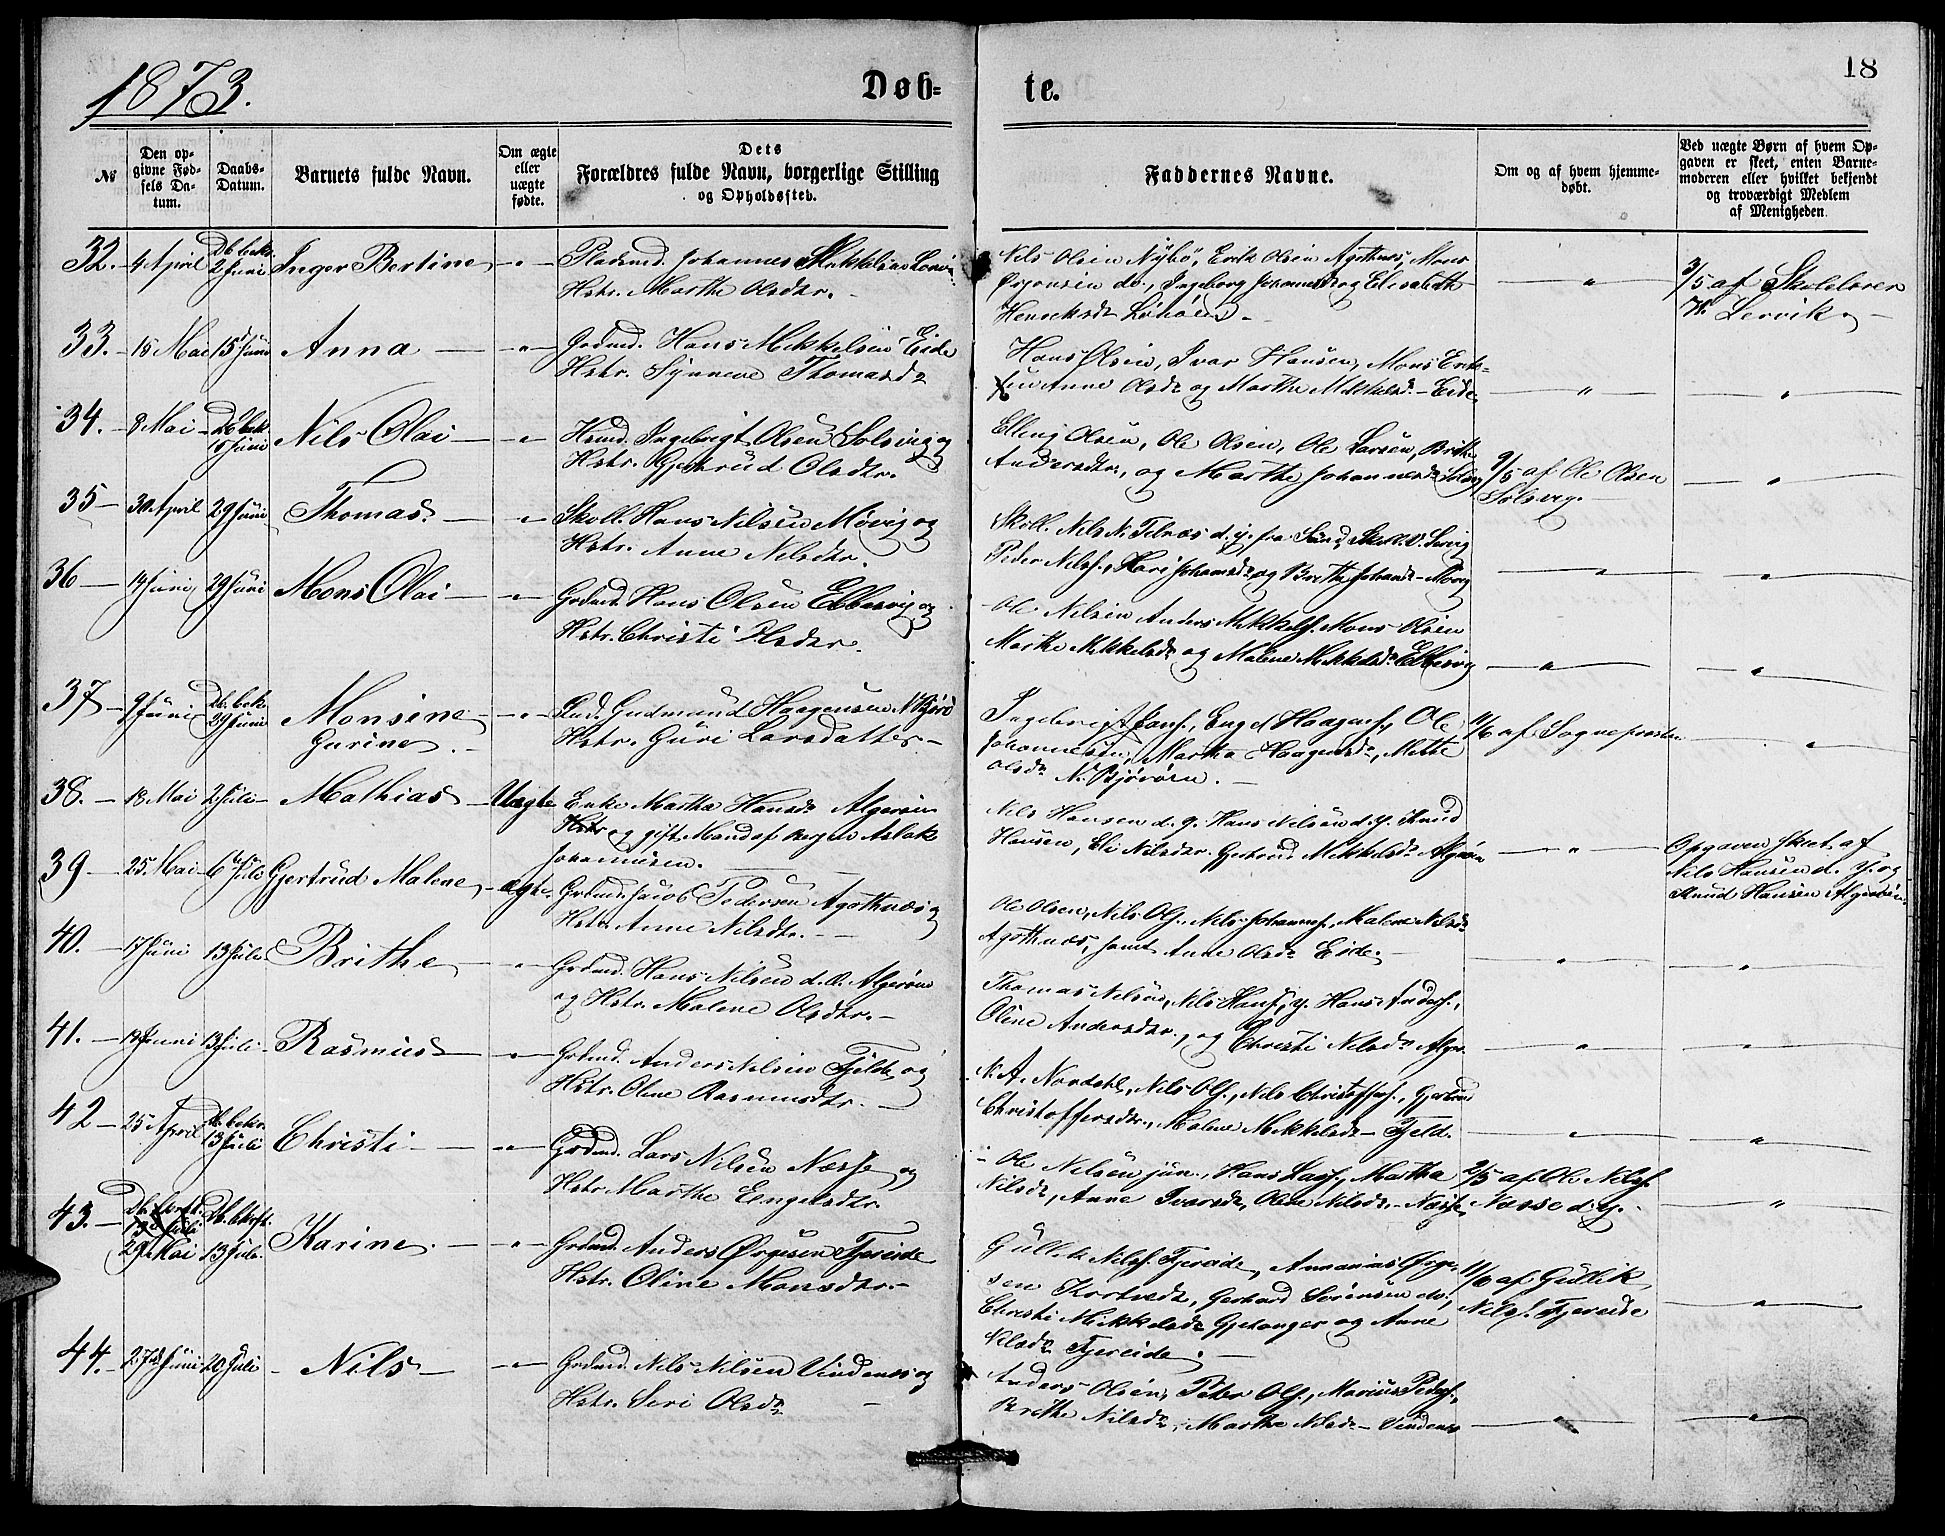 1873.
Døb=
te.
18
№
Den op=
givne Fød=
sels Da=
tum.
Daabs=
Datum.
Barnets fulde Navn.
Om ægte
eller
uægte
fødte.
Dets
Forældres fulde Navn, borgerlige Stilling
og Opholdssted.
Faddernes Navne.
Om og af hvem hjemme=
døbt.
Ved uægte Børn af hvem Op=
gaven er skeet, enten Barne=
moderen eller hvilket bekjendt
og troværdigt Medlem
af Menigheden.
32. 4 April Db. bekr. 2 Juni Inger Bertine
Pladsmd. Johannes Mikkelsen
Hstr. Marthe Olsdtr.
Nils Olsen Nybø, Erik Olsen Agothnes, Mons
do., Ingeborg Johannesdr og Elisabeth
Henriksdr
3/5 af Skolelærer
Lervik.
33. 15 Mai 15 Juni Anna
Grdmd. Hans Mikkelsen Eide
Hstr. Synneve Thomasdr
Hans Olsen, Ivar Hansen, Mons Erik=
sen Anne Olsdr og Marthe Mikkelsdr Eide
34. 8 Mai Db. bek. 15 Juni Nils Olai
Husmd. Ingebrigt Olsen Solsvig og
Hstr. Gjertrud Olsdtr.
Elling Olsen, Ole Olsen, Ole Larsen, Brithe
Andersdtr., og Marthe Johannesdr Solsvig
9/5 af Ole Olsen
Solsvig.
35 30 April 29 Juni Thomas.
Skoll. Hans Nilsen Møvig og
Hstr. Anne Nilsdtr.
Skoll. Nils N. Telnæs d. y. fra Sund, Skoll.
Peder Nilss., Kari Johannesdr og Brithe Johansdr Møvig
36 14 Juni 29 Juni Mons Olai
Grdmd. Hans Olsen Ebbesvig og
Hstr. Christi Olsdtr.
Ole Nilsen Anders Mikkels. Mons Olsen
Marthe Mikkelsdr og Malene Mikkelsdr Ebbesvig
37 9 Juni Db. bek. 29 Juni Monsine
Gurine.
Gudmund Haagensen N. Bjørø
Hstr. Guri Larsdatter
Ingebrigt Jans., Engel Haagens., Ole
Johannesen, Martha Haagensdr, Mette
Olsdr N. Bjørøen.
11/6 af Sognepresten
38. 18 Mai 2 Juli Mathias Uægte
Enke Martha Hansdr Algerøen
og gift Mand af Bergen Aslak
Johannesen.
Nils Hansen d. y. Hans Nilsen d. y. Knud
Hansen, Eli Nilsdtr. Gjertrud Mikkelsdr Algerøen
Opgaven skeet af
Nils Hansen d. y. og
Knud Hansen Algerøen
39 25 Mai 6 Juli Gjertrud Malene ægte
Grdmd. Jacob Pedersen Agothnæs og
Hstr. Anne Nilsdtr.
Ole Olsen, Nils Ols., Nils Johanness., Malene Nilsdr
Agothnæs, samt Anne Olsdr Eide.
40. 17 Juni 13 Juli Brithe
Grdmd. Hans Nilsen d. Æ. Algerøen
og Hstr. Malene Olsdtr.
Thomas Nilsen, Nils Hans. y. Hans Anders.,
Oline Andersdtr., og Christi Nilsdr Alger.
41. 18 Juni 13 Juli Rasmus
Grdmd. Anders Nilsen Fjeld og
Hstr. Oline Rasmusdtr.
N. A. Nordahl, Nils Ols., Nils Christoffers., Gjertrud
Christoffersdtr., Malene Mikkelsdr Fjeld.
42 25 April Db. bekr. 13 Juli Christi
Grdmd. Lars Nilsen Næsse og
Hstr. Marthe Engelsdtr.
Ole Nilsen jun., Hans Lass., Martha
Nilsdr, Anne Ivarsdr, Oline Nilsdr Næsse
2/5 af Ole Nilss.
Næsse d. y.
43. 29 Mai 13 Juli Karine.
Grdmd. Anders Ørgesen Fjereide
Hstr. Oline Monsdtr.
Gullik Nilss. Fjereide, Annanias Ørge=
sen Gerhard Sørensen do.,
Christi Mikkelsdr Gjetanger og Anne
Nilsdr Fjereide.
11/6 af Gullik
Nilss. Fjereide
44. 27 Juni 20 Juli Nils
Grdmd. Nils Nilsen Vindenes og
Hstr. Siri Olsdr
Anders Olsen, Peter Ols., Marius Peders.
Brethe Nilsdr, Martha Nilsdr Vindenes